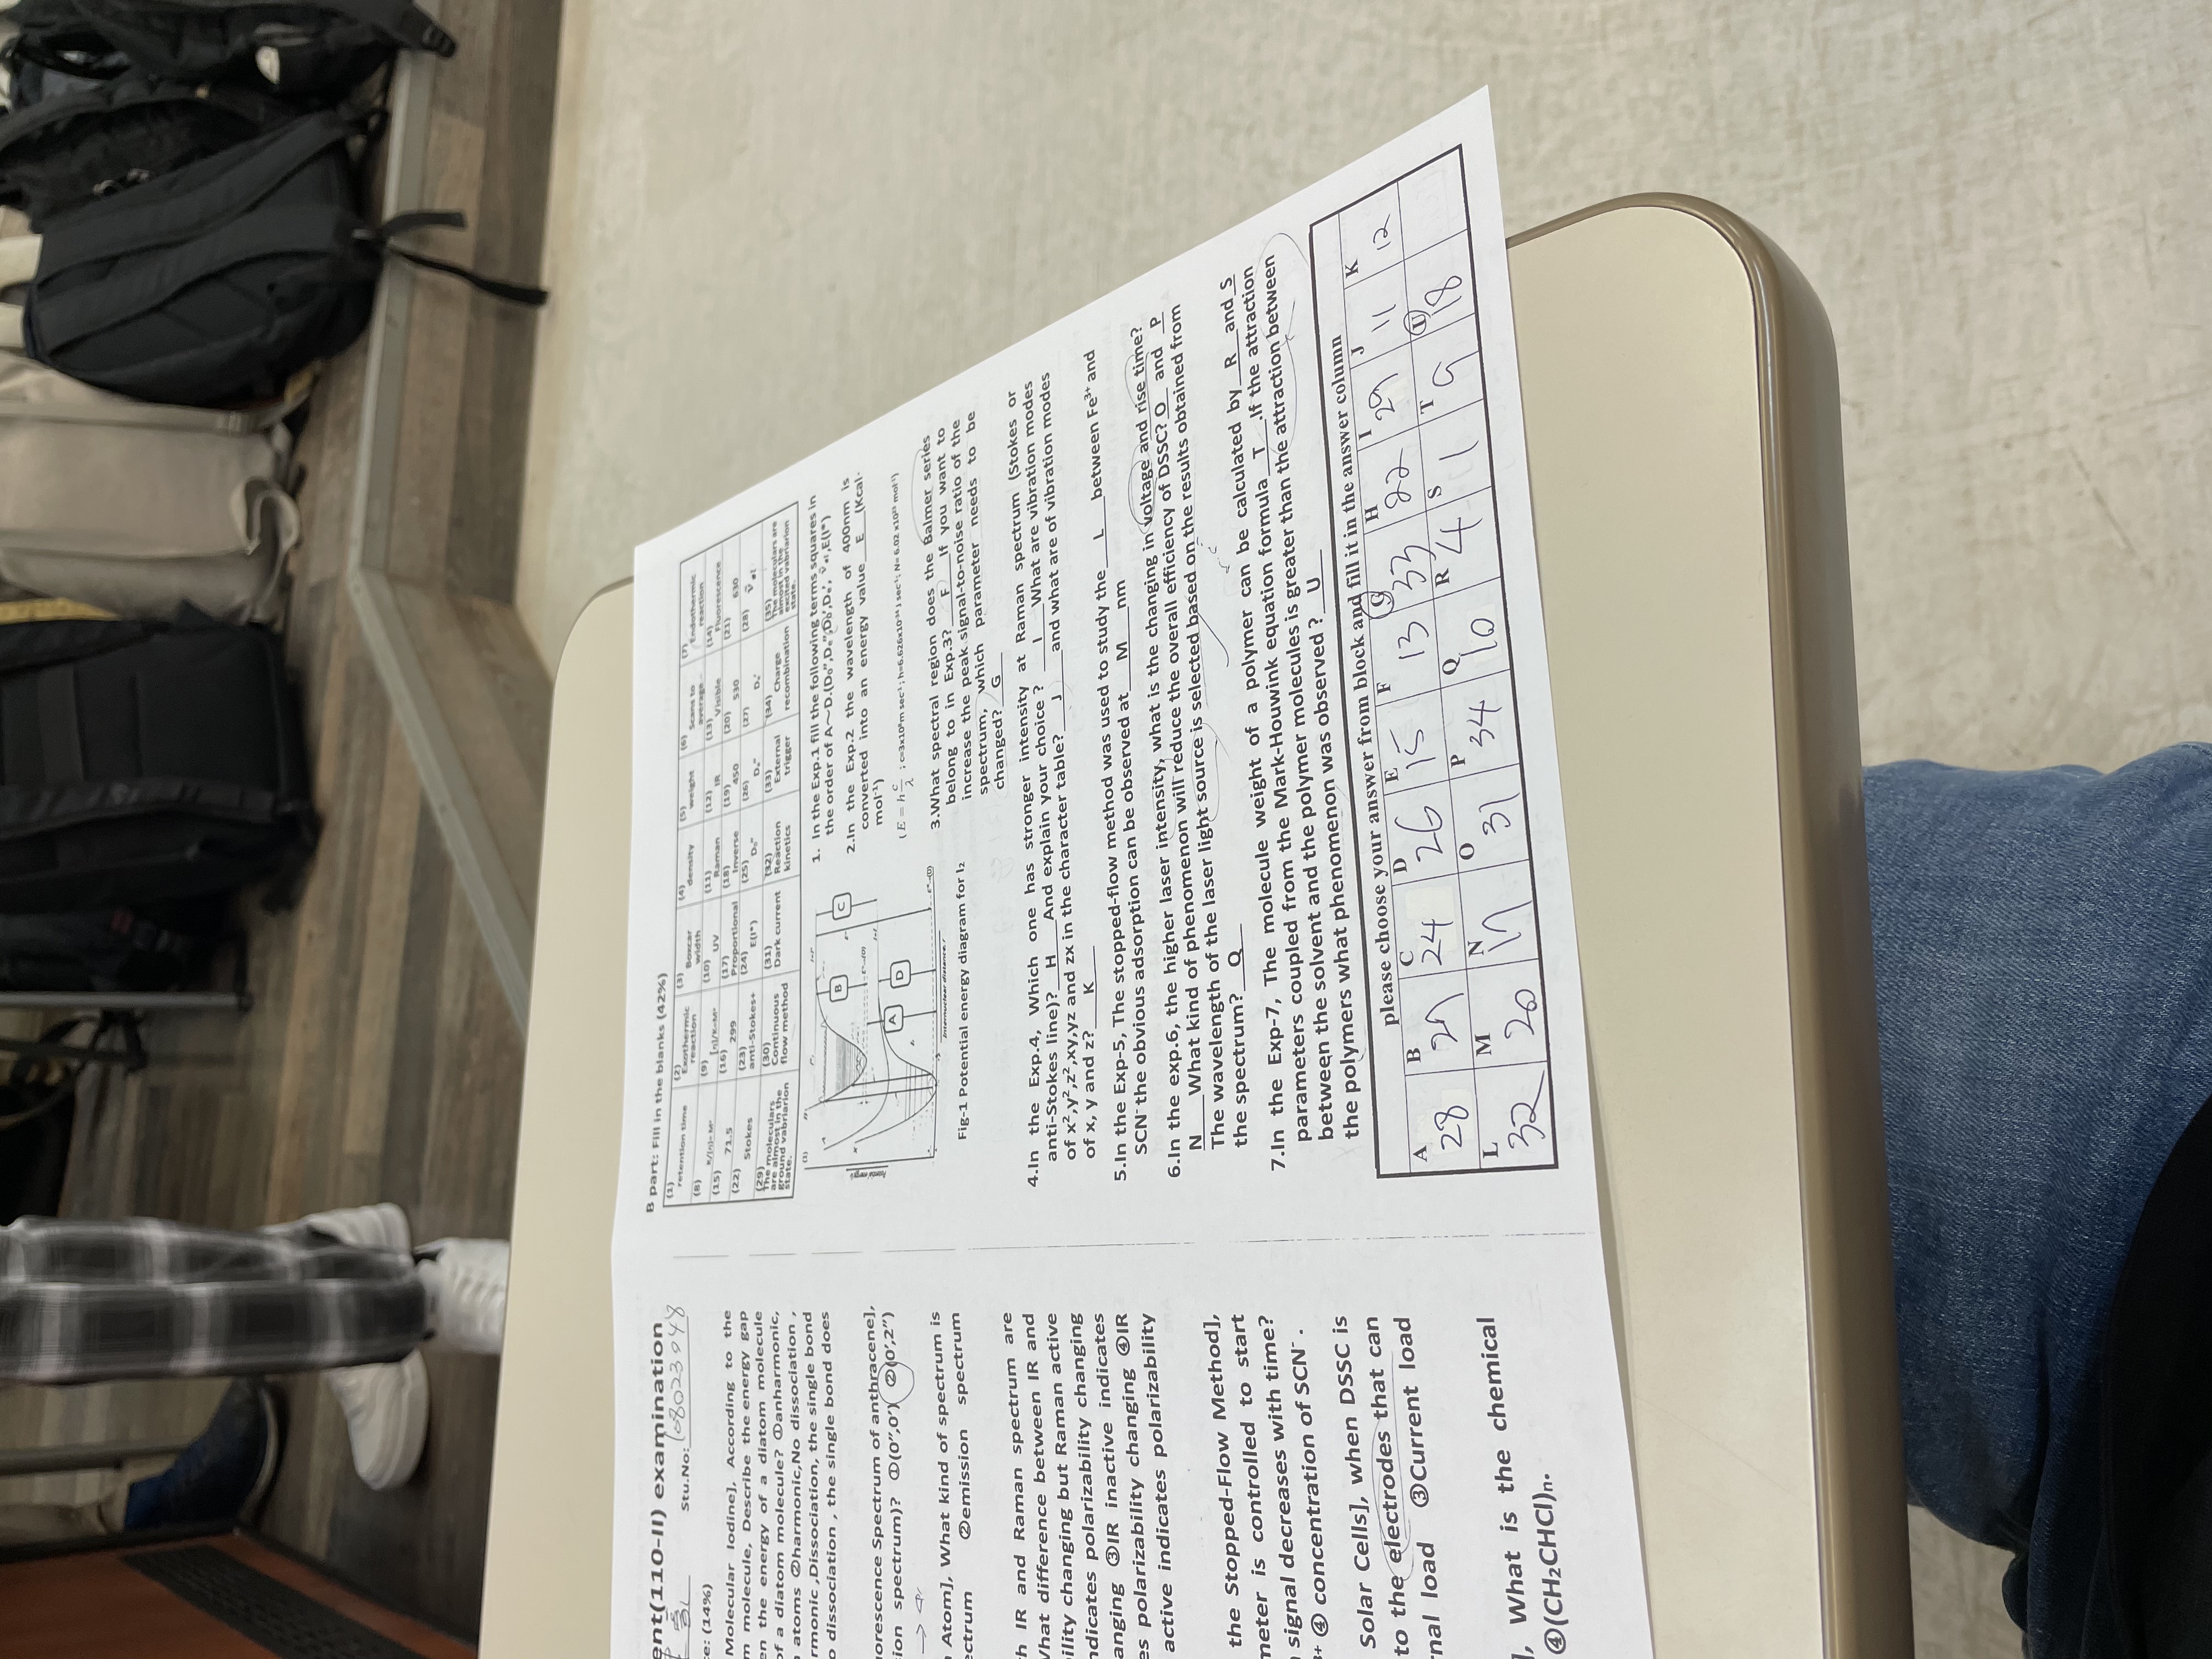 ent(110-II) examination
Stu.No: 108023048
ce: (14%)
Molecular Iodine], According to the
m molecule, Describe the energy gap
en the energy of a diatom molecule
of a diatom molecule? ①anharmonic,
atoms ②harmonic,No dissociation ,
rmonic ,Dissociation, the single bond
o dissociation , the single bond does
uorescence Spectrum of anthracene],
ion spectrum)? ①(0″,0′) ②(0′,2″)
Atom], What kind of spectrum is
ectrum ②emission spectrum
h IR and Raman spectrum are
What difference between IR and
ility changing but Raman active
ndicates polarizability changing
anging ③IR inactive indicates
es polarizability changing ④IR
active indicates polarizability
the Stopped-Flow Method],
meter is controlled to start
signal decreases with time?
3+ ④ concentration of SCN⁻ .
Solar Cells], when DSSC is
to the electrodes that can
rnal load ③Current load
], What is the chemical
④(CH₂CHCl)n.
B part: Fill in the blanks (42%)
(1) retention time (2) Exothermic reaction (3) Boxcar width (4) density (5) weight (6) Scans to average (7) Endothermic reaction
(8) K/[η]=Mᵃ (9) [η]/K=Mᵃ (10) UV (11) Raman (12) IR (13) Visible (14) Fluorescence
(15) 71.5 (16) 299 (17) Proportional (18) Inverse (19) 450 (20) 530 (21) 630
(22) Stokes (23) anti-Stokes+ (24) E(I*) (25) D₀″ (26) Dₑ″ (27) Dₑ′ (28) ṽel
(29) The moleculars are almost in the ground vabriarion state. (30) Continuous flow method (31) Dark current (32) Reaction kinetics (33) External trigger (34) Charge recombination (35) The moleculars are almost in the excited vabriarion state.
Potential energy
A
B
C
D
Internuclear distance, r
Fig-1 Potential energy diagram for I₂
1. In the Exp.1 fill the following terms squares in
the order of A~D.(D₀″,Dₑ″,D₀′,Dₑ′, ṽel,E(I*)
2.In the Exp.2 the wavelength of 400nm is
converted into an energy value__E__(Kcal-
mol⁻¹)
(E = h c/λ ; c=3x10⁸m sec⁻¹; h=6.626x10⁻³⁴ J sec⁻¹; N= 6.02 x10²³ mol⁻¹)
3.What spectral region does the Balmer series
belong to in Exp.3?__F__ If you want to
increase the peak signal-to-noise ratio of the
spectrum, which parameter needs to be
changed?__G__
4.In the Exp.4, Which one has stronger intensity at Raman spectrum (Stokes or
anti-Stokes line)?__H__And explain your choice ?__I__What are vibration modes
of x²,y²,z²,xy,yz and zx in the character table?__J__and what are of vibration modes
of x, y and z?__K__
5.In the Exp-5, The stopped-flow method was used to study the__L__between Fe³⁺ and
SCN⁻ the obvious adsorption can be observed at__M__nm
6.In the exp.6, the higher laser intensity, what is the changing in voltage and rise time?
__N__What kind of phenomenon will reduce the overall efficiency of DSSC?_O_ and _P_
The wavelength of the laser light source is selected based on the results obtained from
the spectrum?__Q__
7.In the Exp-7, The molecule weight of a polymer can be calculated by__R__and_S_
parameters coupled from the Mark-Houwink equation formula__T__.If the attraction
between the solvent and the polymer molecules is greater than the attraction between
the polymers what phenomenon was observed ?__U__
please choose your answer from block and fill it in the answer column
A B C D E F G H I J K
28 27 24 26 15 13 33 22 29 11 12
L M N O P Q R S T U
32 20 17 31 34 10 4 1 9 18